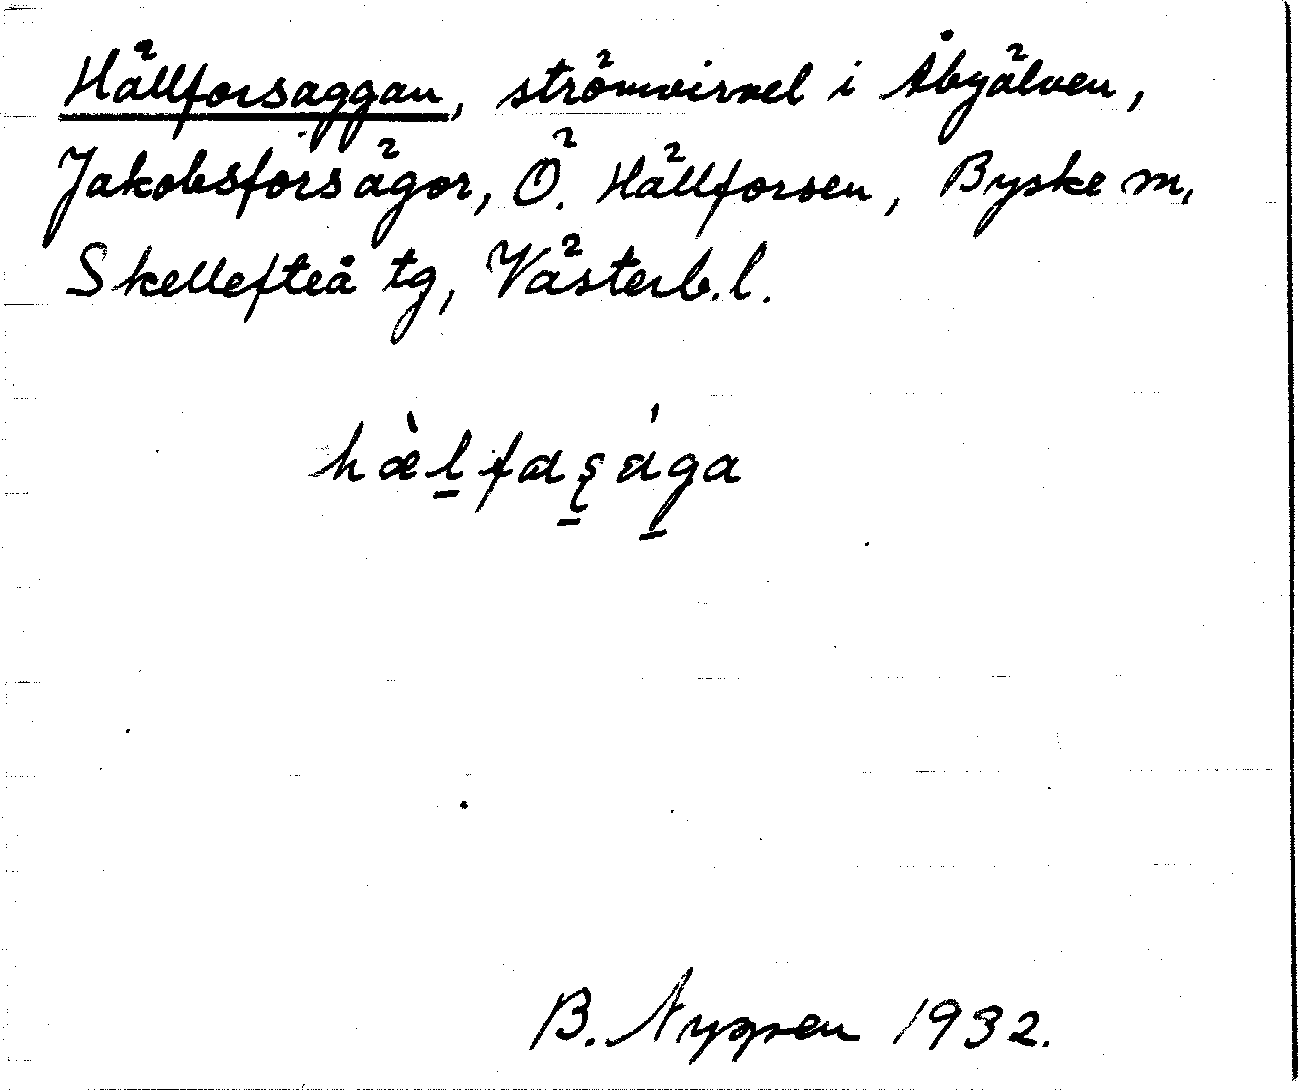 Hällforsaggan, strömvirvel i Åbyälven,
Jakobsfors ägor, Ö. Hällforsen, Byske sn,
Skellefteå tg, Västerb. l.
B. Nygren 1932.